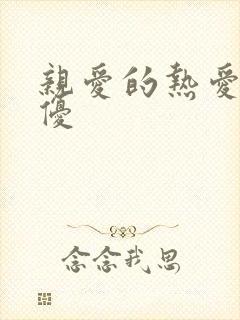 親愛的熱愛
優
念念我思